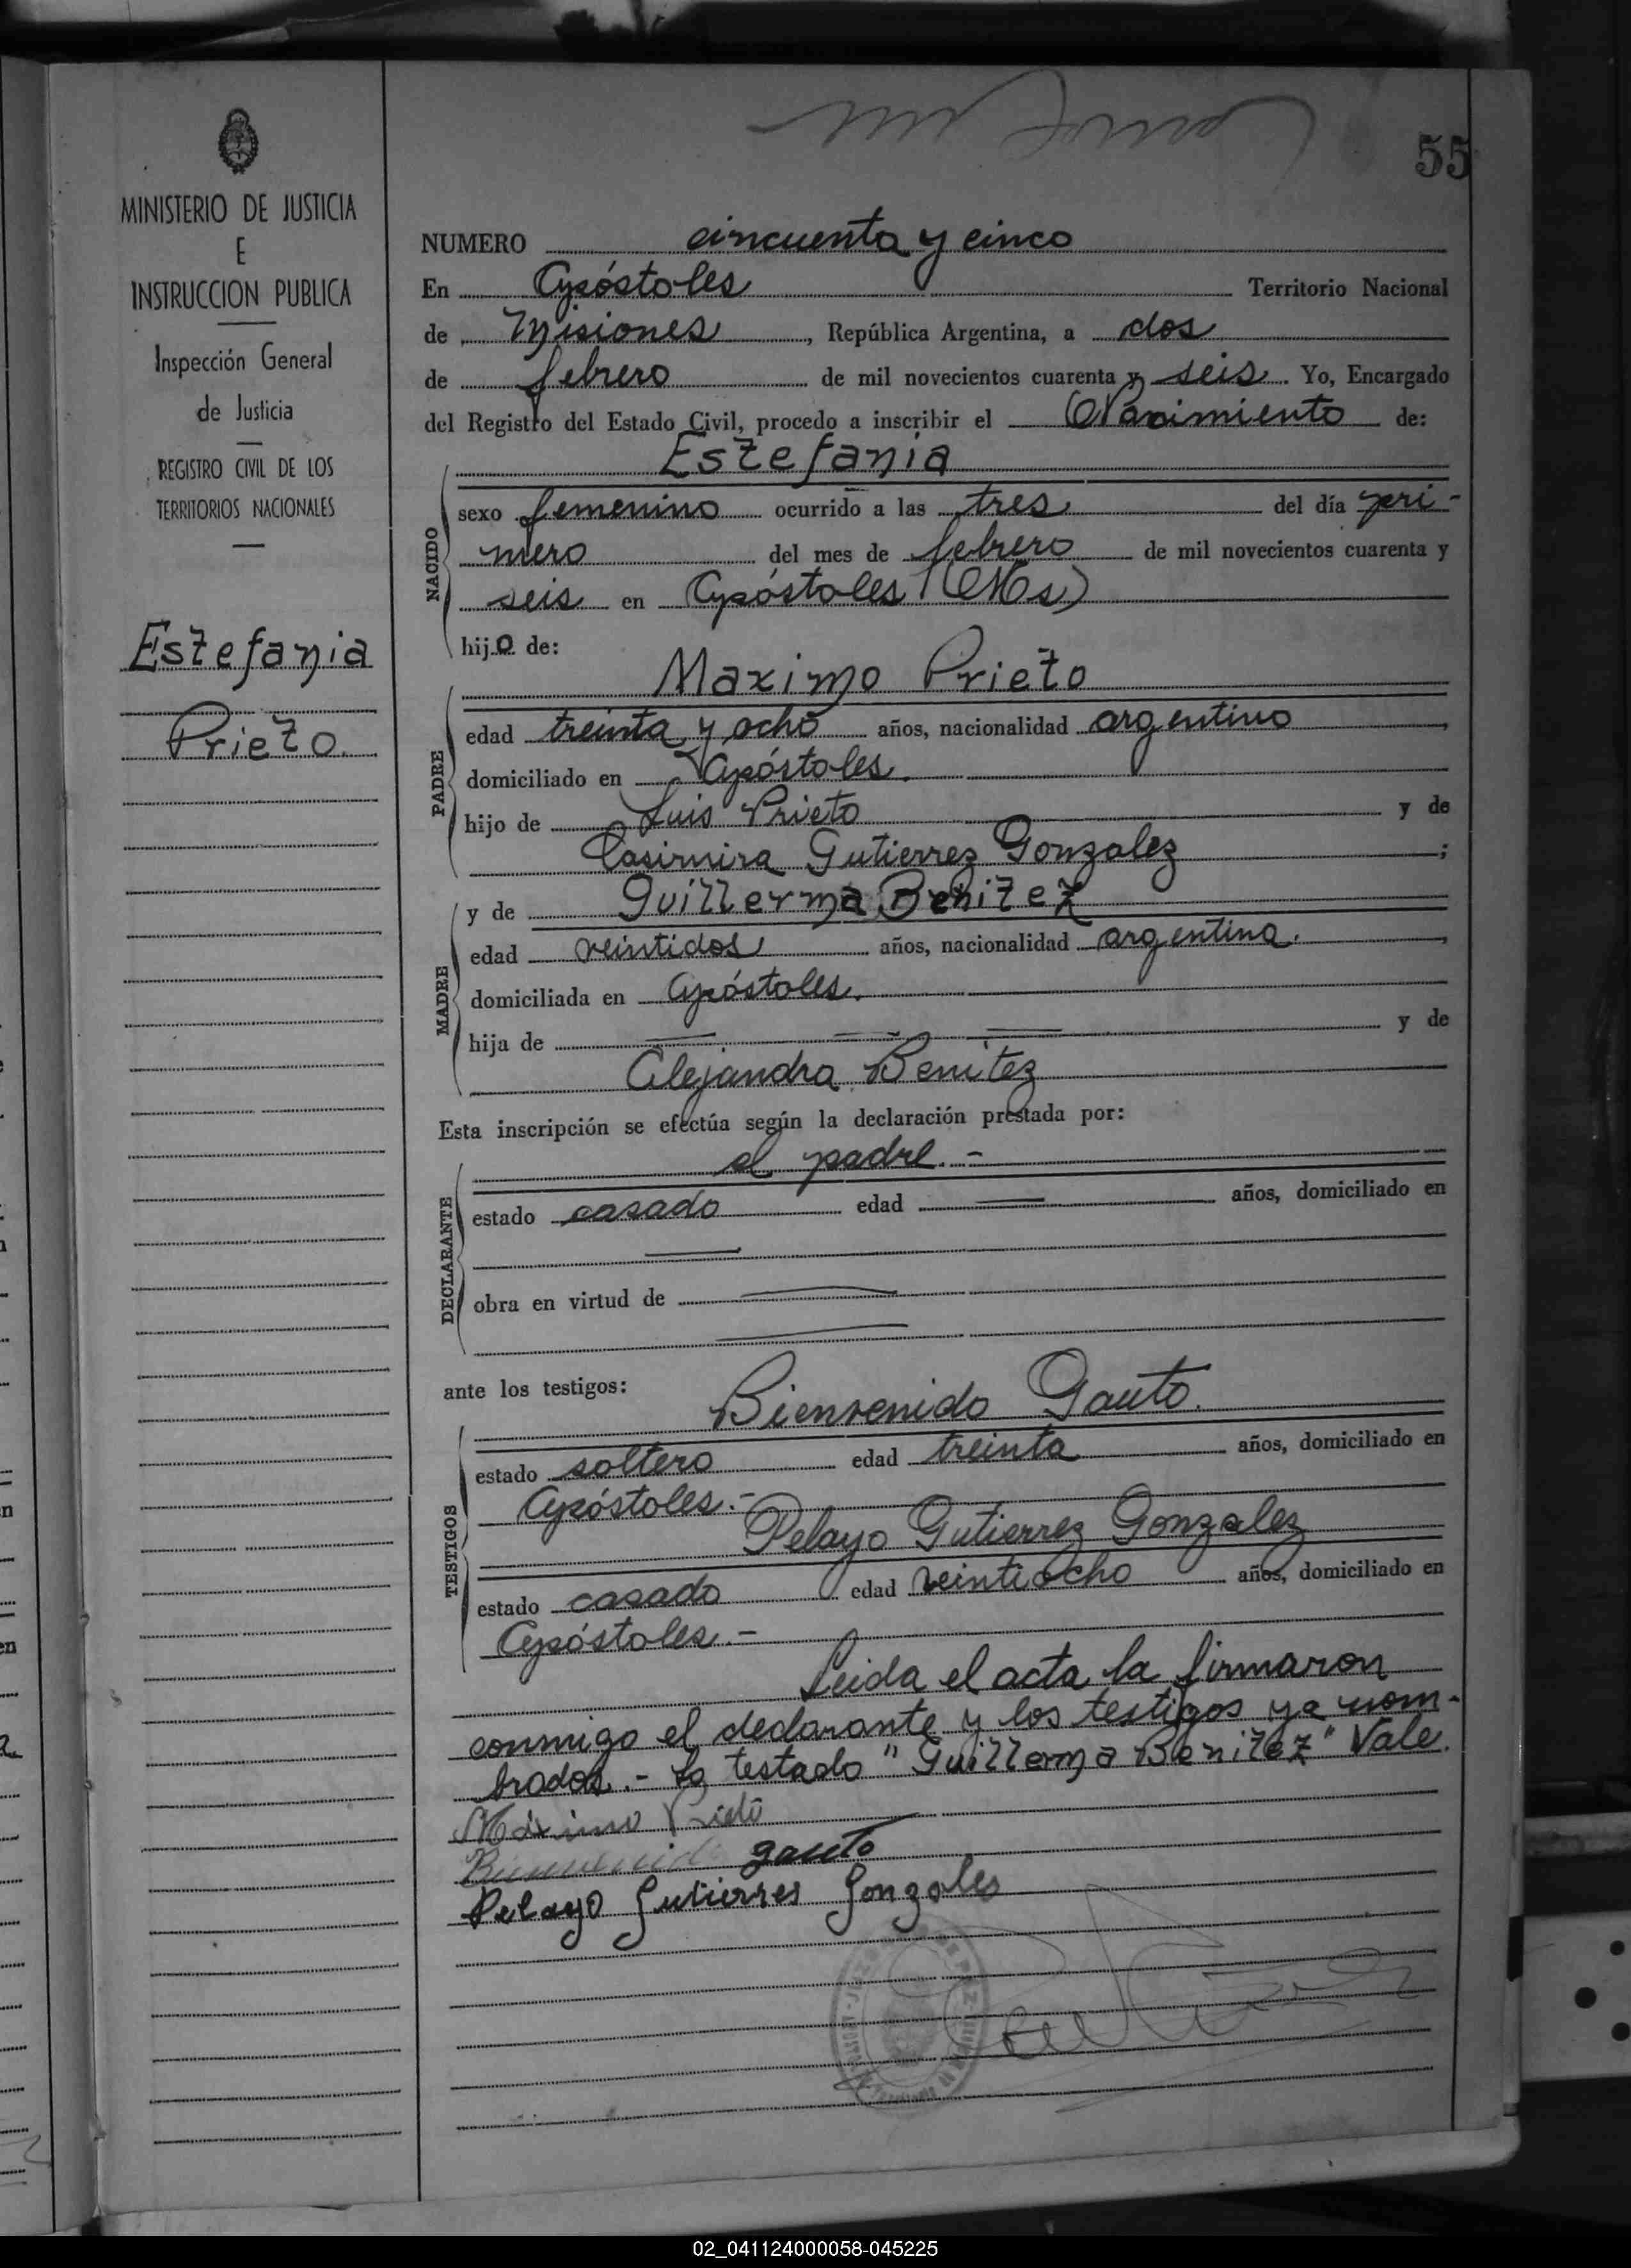 55
MINISTERIO DE JUSTICIA
E
INSTRUCCION PUBLICA
Inspección General
de Justicia
REGISTRO CIVIL DE LOS
TERRITORIOS NACIONALES
Estefania
Prieto.
NUMERO cincuenta y cinco
En Apóstoles Territorio Nacional
de Misiones, República Argentina, a dos
de febrero de mil novecientos cuarenta y seis. Yo, Encargado
del Registro del Estado Civil, procedo a inscribir el Nacimiento de:
NACIDO
Estefania
sexo femenino ocurrido a las tres del día pri-
mero del mes de febrero de mil novecientos cuarenta y
seis en Apóstoles (Ms)
hijo de:
PADRE
Maximo Prieto
edad treinta y ocho años, nacionalidad argentino,
domiciliado en Apóstoles.
hijo de Luis Prieto y de
Casimira Gutierrez Gonzalez;
MADRE
y de Guillerma Benitez
edad veintidos años, nacionalidad argentina.,
domiciliada en Apóstoles.
hija de y de
Alejandra Benítez
Esta inscripción se efectúa según la declaración prestada por:
DECLARANTE
el padre.-
estado casado edad años, domiciliado en
obra en virtud de
ante los testigos:
TESTIGOS
Bienvenido Gauto.
estado soltero edad treinta años, domiciliado en
Apóstoles.-
Pelayo Gutierrez Gonzalez
estado casado edad veintiocho años, domiciliado en
Apóstoles.-
Leida el acta la firmaron
conmigo el declarante y los testigos ya nom-
brados.- Lo testado "Guillerma Benitez" Vale.
Máximo Prieto
Bienvenido gauto
Pelayo Gutierres Gonzales
02_041124000058-045225